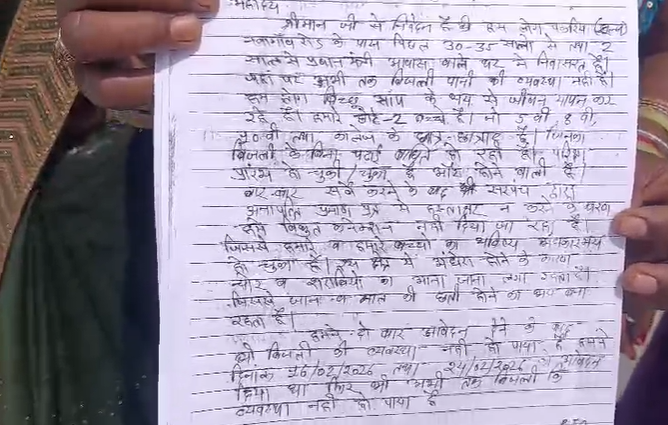 महोदय
श्रीमान जी से निवेदन है की हम लोग पकरिया
के पास विगत 30-35 सालो से तथा 2
साल से प्रधान मंत्री आवास वाले घर में निवासरत है।
जहां पर अभी तक बिजली पानी की व्यवस्था नही है।
हम लोग बिच्छू सांप के भय से जीवन यापन कर
रहे है। हमारे छोटे-2 बच्चे है। जो 5 वी, 8 वी,
10वी तथा कालेज के छात्र-छात्राए है। जिनका
बिजली के बिना पढाई बाधित हो रहा है। परीक्षा
प्रारंभ हो चुका/चुकी है और होने वाली है।
बार-बार सर्वे करने के बाद भी सरपंच द्वारा
अनापत्ति प्रमाण पत्र में हस्ताक्षर न करने के कारण
हमे विद्युत कनेक्शन नही दिया जा रहा है।
जिससे हमारे व हमारे बच्चो का भविष्य अंधकारमय
हो चुका है। इस क्षेत्र में अंधेरा होने के कारण
चोर व शराबियो का आना जाना लगा रहता है।
जिससे जान व माल की हानी होने का भय बना
रहता है।
हमने दो बार आवेदन देने के बाद
भी बिजली की व्यवस्था नही हो पाया है हमने
दिनांक 16/02/2026 तथा 24/02/2026 को आवेदन
दिया था फिर भी अभी तक बिजली कि
व्यवस्था नही हो पाया है